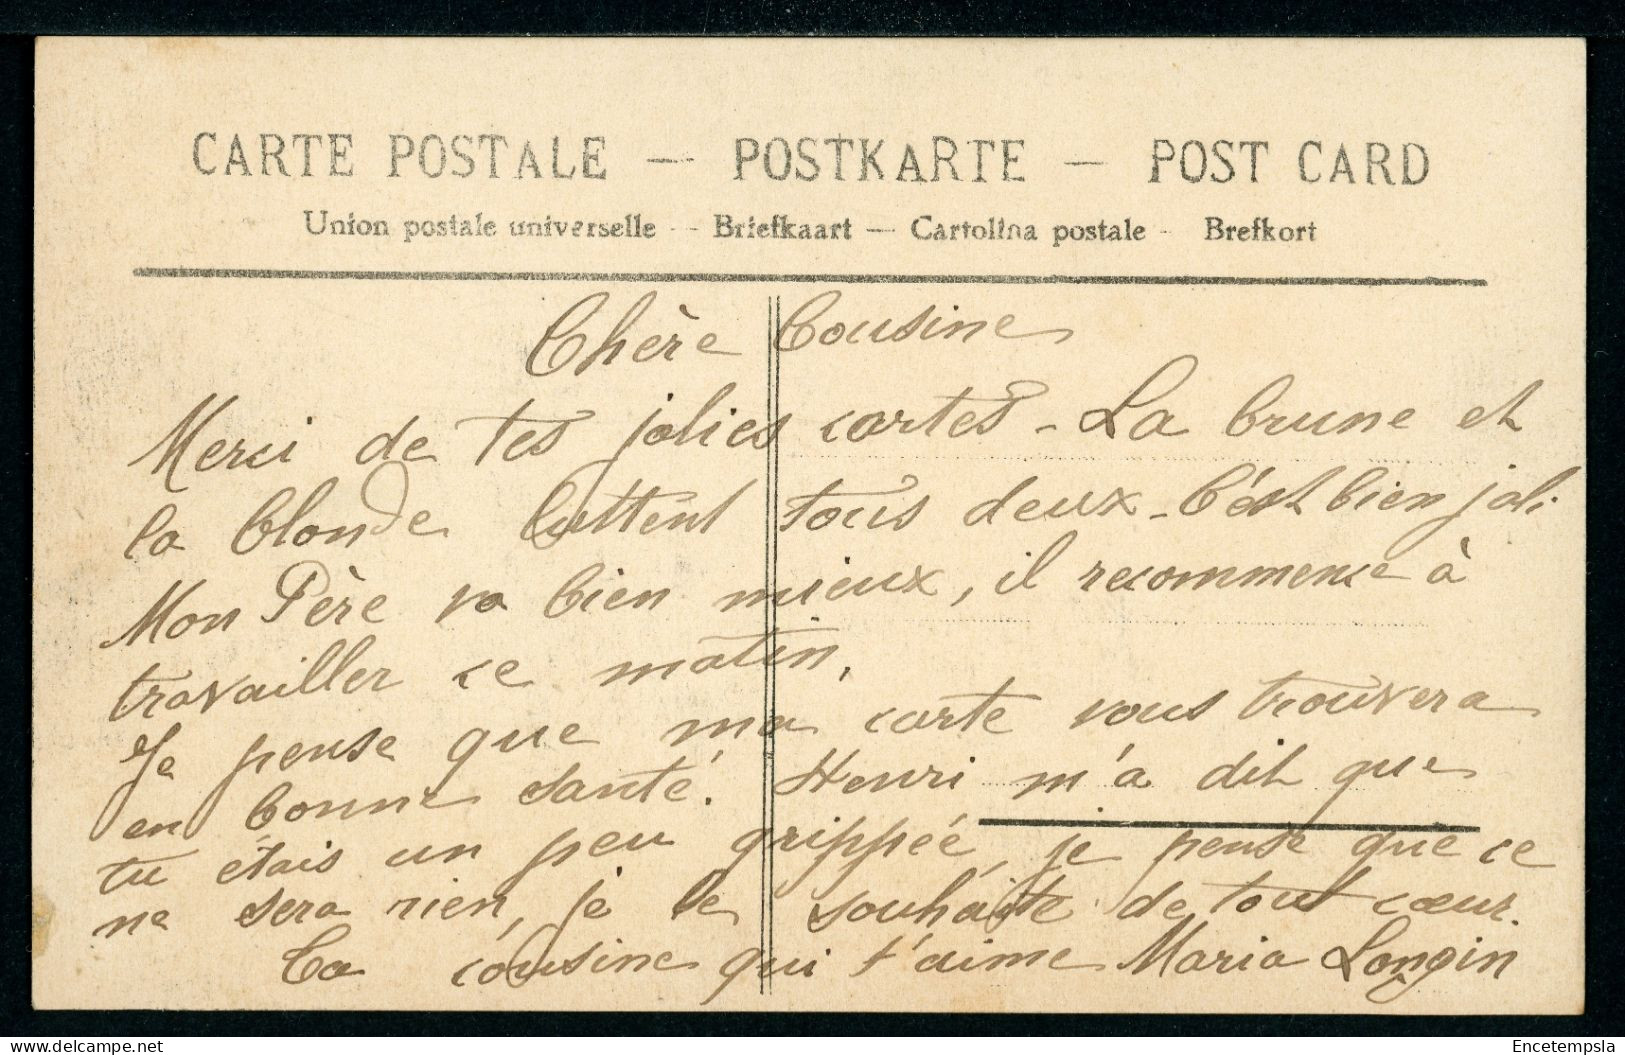 CARTE POSTALE — POSTKARTE — POST CARD
Union postale universelle - Briefkaart — Cartolina postale - Brefkort
Chère Cousine
Merci de tes jolies cartes - La brune et
la blonde luttent tous deux - C'est bien joli
Mon Père va bien mieux, il recommence à
travailler ce matin,
Je pense que ma carte vous trouvera
en bonne santé. Henri m'a dit que
tu étais un peu grippée, je pense que ce
ne sera rien, je le souhaite de tout cœur.
Ta cousine qui t'aime Maria Longin
www.delcampe.net
Encetempsla